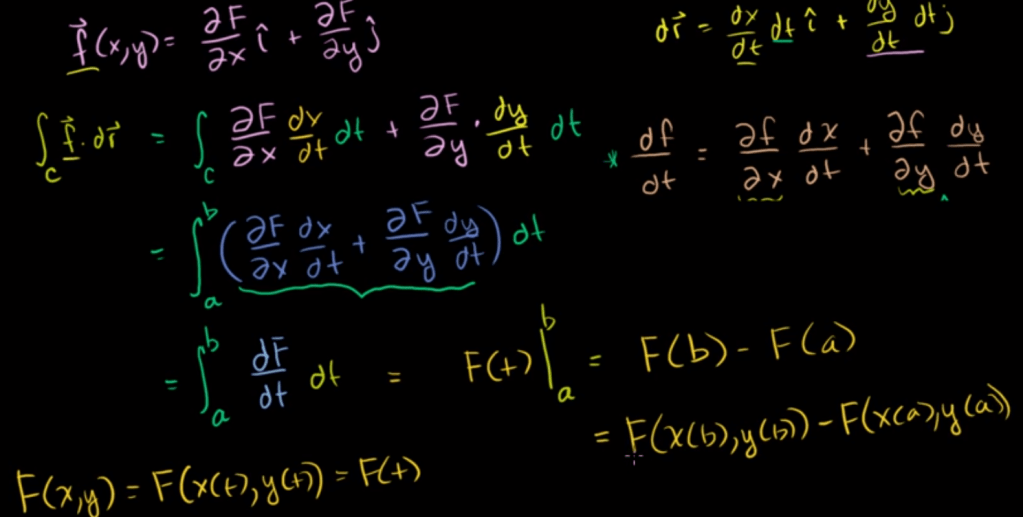 f⃗(x,y) = ∂F/∂x î + ∂F/∂y ĵ
dr⃗ = dx/dt dt î + dy/dt dt j
∫_C f⃗ · dr⃗ = ∫_C ∂F/∂x dx/dt dt + ∂F/∂y · dy/dt dt
* df/dt = ∂f/∂x dx/dt + ∂f/∂y dy/dt
= ∫_a^b (∂F/∂x dx/dt + ∂F/∂y dy/dt) dt
= ∫_a^b dF/dt dt = F(t) |_a^b = F(b) - F(a)
= F(x(b),y(b)) - F(x(a),y(a))
F(x,y) = F(x(t),y(t)) = F(t)